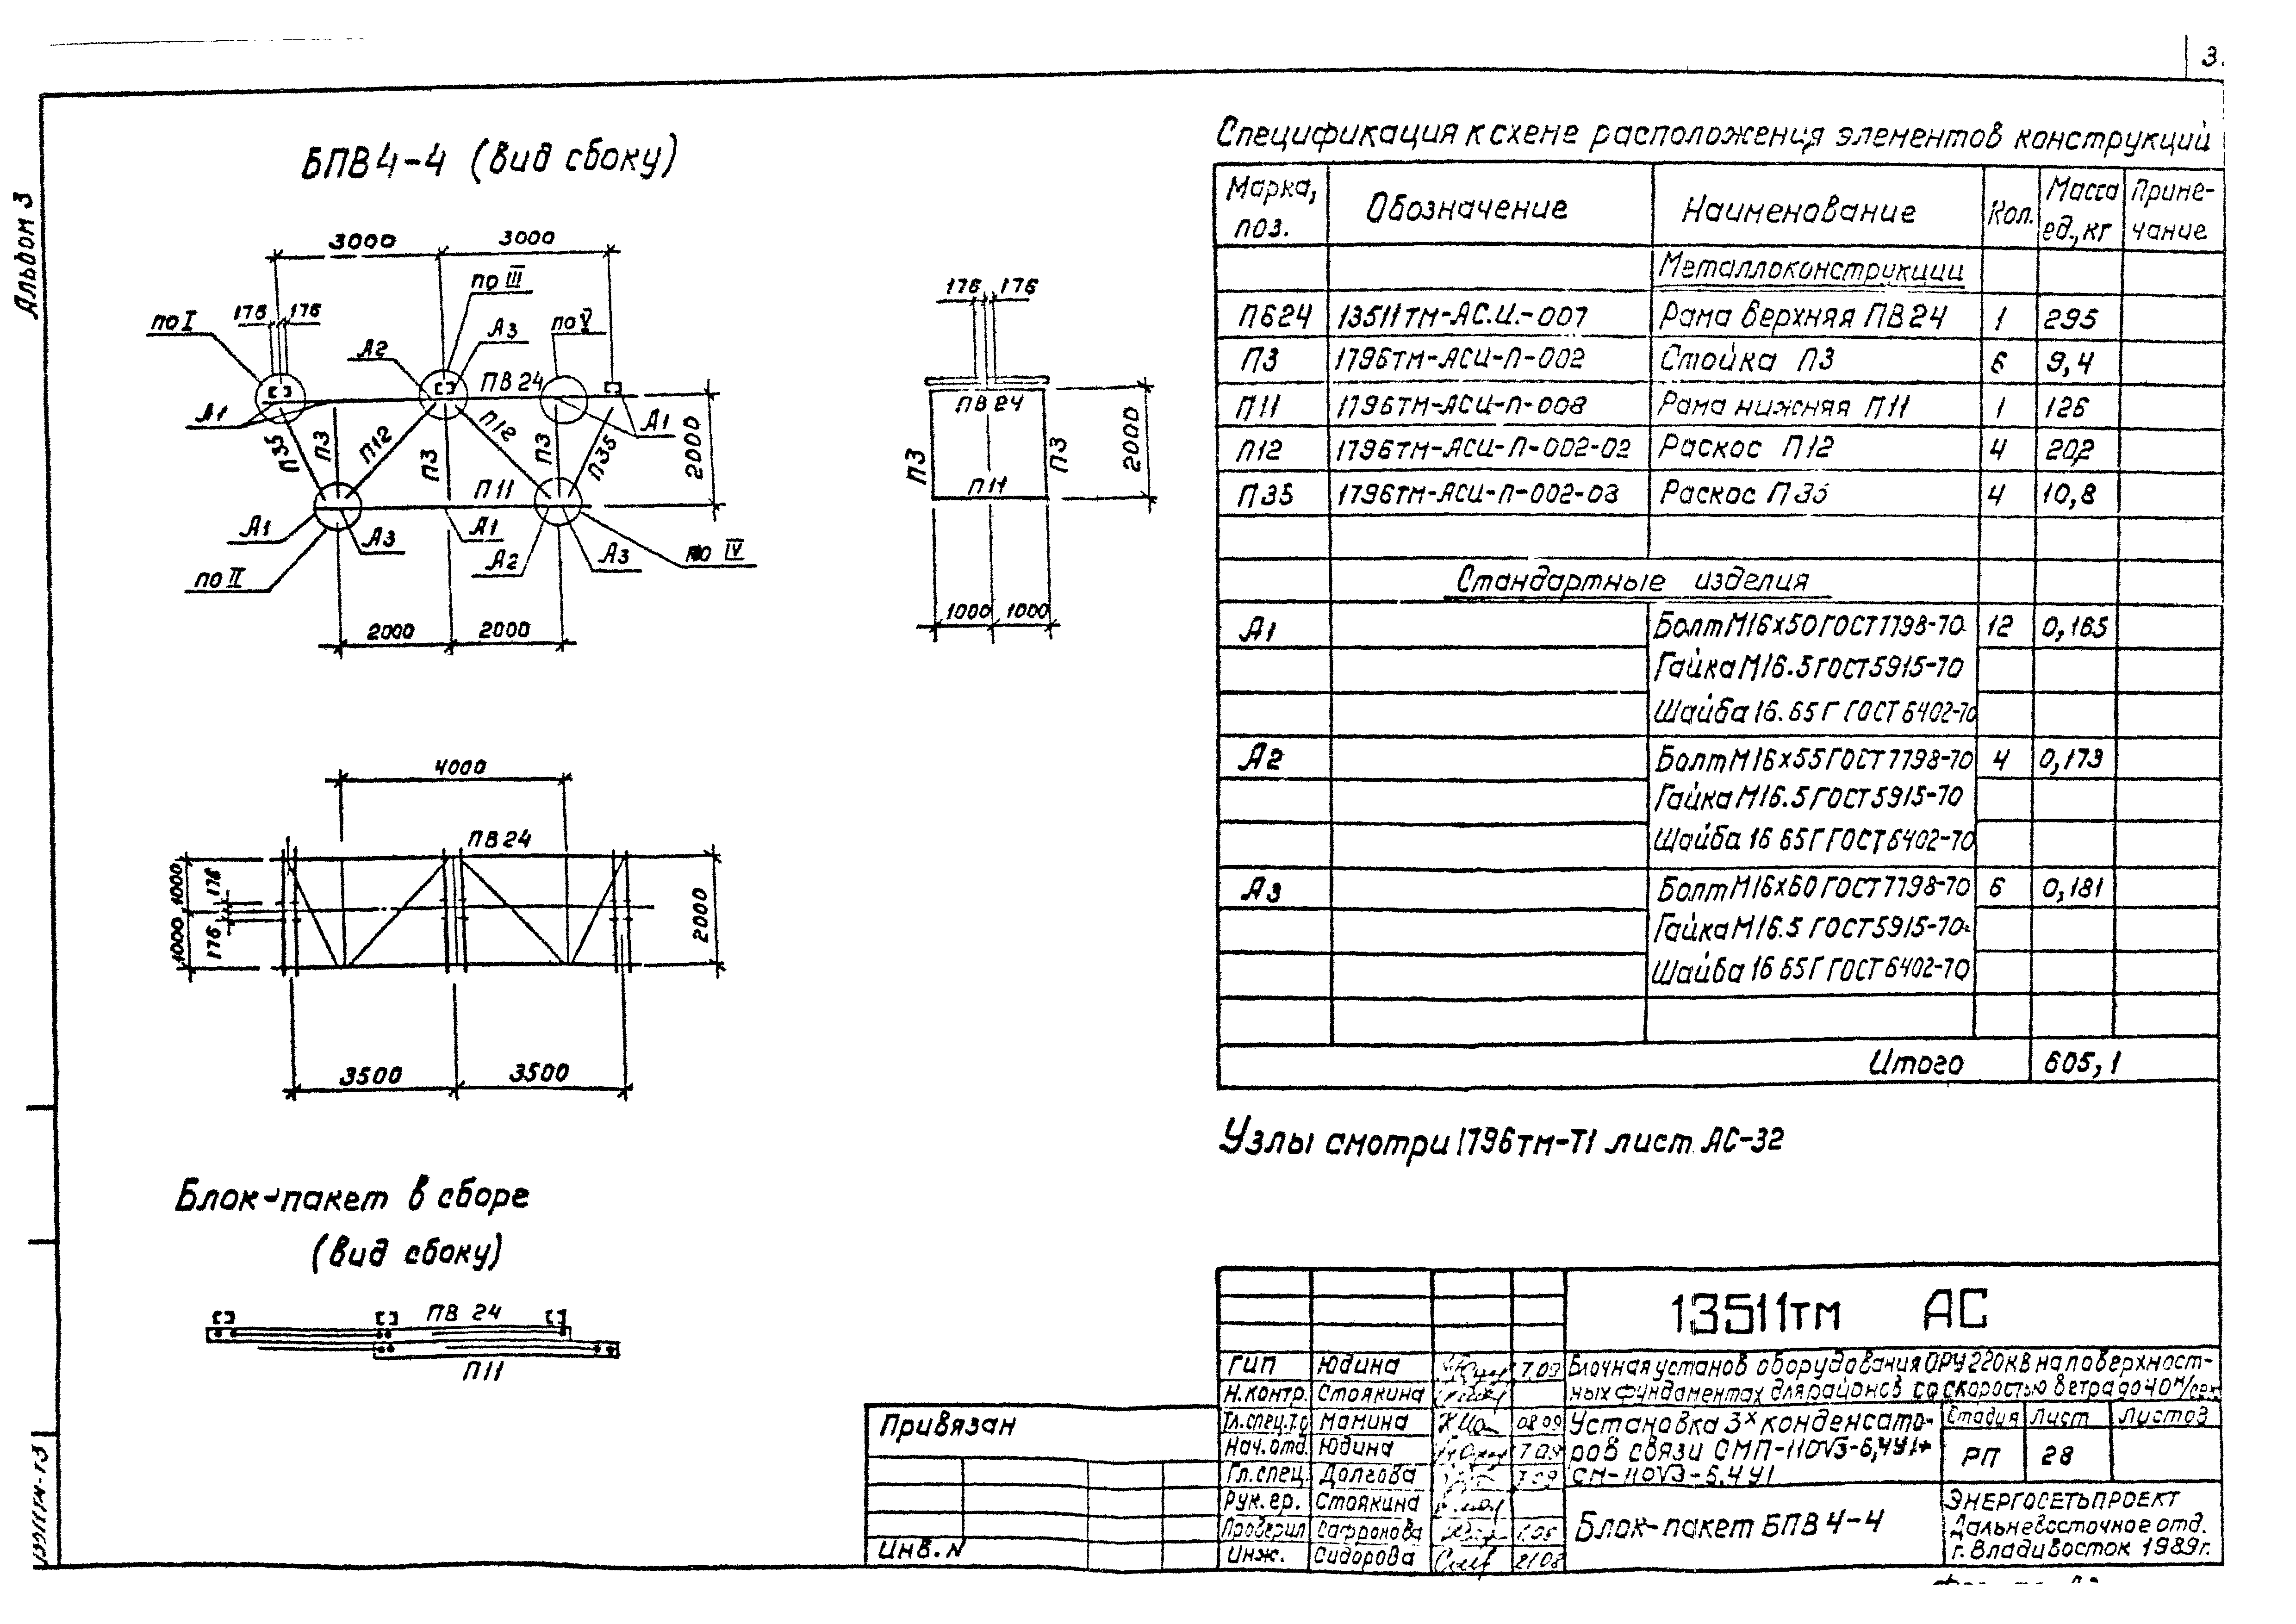 3.
Альбом 3
БПВ 4-4 (вид сбоку)
3000
3000
по III
176
176
по I
А3
по V
А2
ПВ 24
А1
А1
П35
П3
П12
П3
П12
П3
П35
2000
П11
А1
А3
А1
А2
А3
по IV
по II
2000
2000
176
176
ПВ 24
П3
П3
2000
П11
1000
1000
4000
ПВ 24
1000
1000
176
176
2000
3500
3500
Блок-пакет в сборе
(вид сбоку)
ПВ 24
П11
Спецификация к схеме расположения элементов конструкций
Марка, поз.
Обозначение
Наименование
Кол.
Масса ед., кг
Приме-чание
Металлоконструкции
ПБ24 13511тм-АС.И.-007 Рама верхняя ПВ24 1 295
П3 1796тм-АСИ-П-002 Стойка П3 6 9,4
П11 1796тм-АСИ-П-008 Рама нижняя П11 1 126
П12 1796тм-АСИ-П-002-02 Раскос П12 4 20,2
П35 1796тм-АСИ-П-002-03 Раскос П35 4 10,8
Стандартные изделия
А1 Болт М16х50 ГОСТ 7798-70 12 0,165
Гайка М16.5 ГОСТ 5915-70
Шайба 16.65Г ГОСТ 6402-70
А2 Болт М16х55 ГОСТ 7798-70 4 0,173
Гайка М16.5 ГОСТ 5915-70
Шайба 16 65Г ГОСТ 6402-70
А3 Болт М16х60 ГОСТ 7798-70 6 0,181
Гайка М16.5 ГОСТ 5915-70
Шайба 16 65Г ГОСТ 6402-70
Итого 605,1
Узлы смотри 1796тм-Т1 лист АС-32
13511тм АС
ГИП Юдина 7.09
Н.контр. Стоякина
Гл.спец.т.о Мамина 08 09
Нач.отд. Юдина 7.09
Гл.спец. Долгова 7.09
Рук.гр. Стоякина
Проверил Сафронова
Инж. Сидорова 21 08
Блочная установ оборудования ОРУ 220кВ на поверхност-
ных фундаментах для районов со скоростью ветра до 40 м/сек
Установка 3х конденсато-
ров связи СМП-110√3-6,4У1+
СМ-110√3-6,4У1
Стадия Лист Листов
РП 28
Блок-пакет БПВ 4-4
ЭНЕРГОСЕТЬПРОЕКТ
Дальневосточное отд.
г. Владивосток 1989г.
Привязан
Инв. N
13511тм-Т3